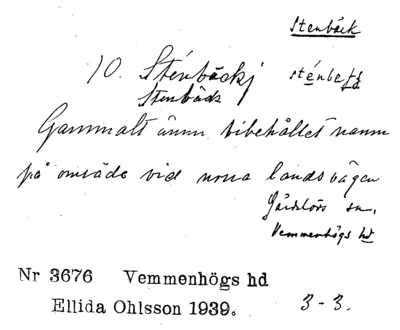 Stenbäck
10. Sténbäckj
Stenbäck
Gammalt ännu bibehållet namn
på område vid norra landsvägen
Gärdslövs sn.
Vemmenhögs hd
Nr 3676 Vemmenhögs hd
Ellida Ohlsson 1939. 3-3.